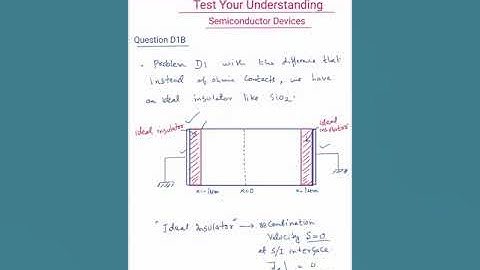 Test Your Understanding
Semiconductor Devices
Question D1B
• Problem D1 with the difference that
instead of ohmic contacts, we have
an ideal insulator like SiO2.
ideal insulator
ideal
insulator
x=-1um x=0 x=1um
"Ideal Insulator" → recombination
velocity S=0
at S/I interface